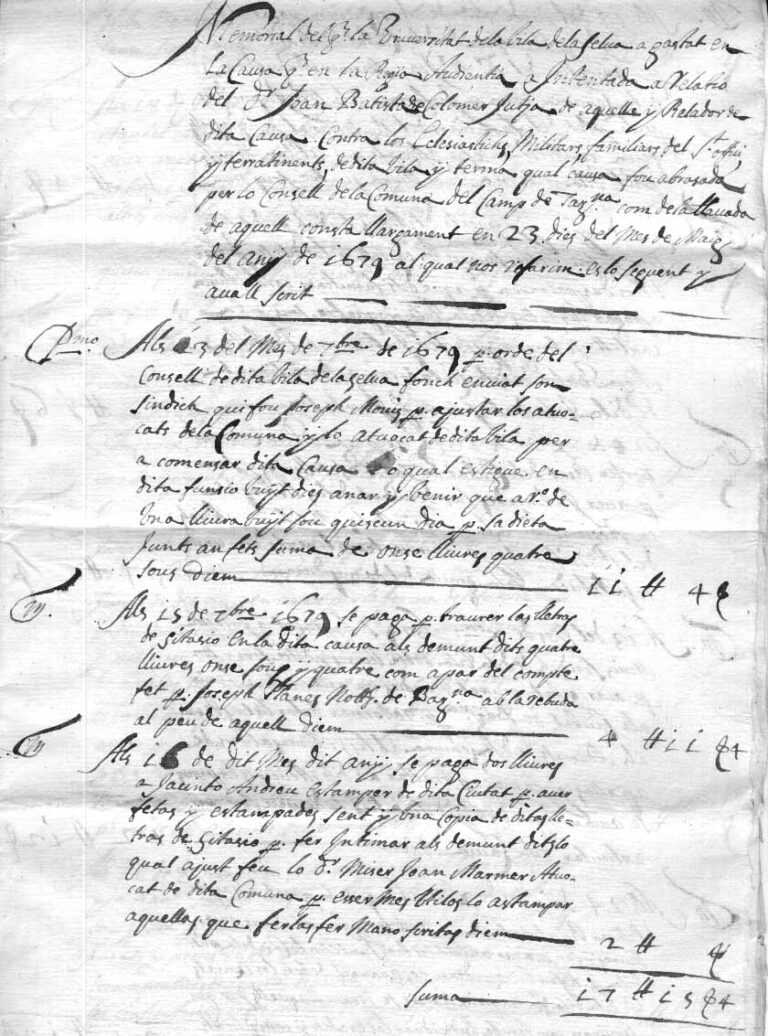 Memorial del q̃ la Universitat de la vila de la selva a gastat en
La Causa q̃ en la Regia Audientia a Intentada a relatio
del Dr Joan Batista de Colomer Jutja de aquella y Relador de
dita causa Contra los Eclesiastichs, Militars, familiars del St offici
y terratinents de dita vila y terma qual causa fou abrasada
per lo Consell de la Comuna del Camp de Tarna com de la
de aquell consta llargament en 23 dies del Mes de Maig
del any de 1679 al qual nos refarim es lo seguent y
avall scrit
Pmo. Als 3 del Mes de 7bre de 1679 p. orde del
Consell de dita vila de la selva fonch enviat son
sindich qui fou Joseph p. ajustar los avo-
cats de la Comuna y lo avocat de dita vila per
a comensar dita Causa lo qual estigue en
dita funsio vuyt dies anar y venir que a ro. de
una lliura vuyt sou quiscun dia p. sa dieta
Junts an fets suma de onse lliures quatre
sous diem 11 ₶ 4 ß
Als 15 de 7bre 1679 se paga p. traurer las lletras
de sitasio en la dita causa als demunt dits quatre
lliures onse sous y quatre com apar del compte
fet p. Joseph Nott. de Barna ab la rebuda
al peu de aquell diem 4 ₶ 11 ß 4
Als 16 de dit Mes dit any se paga dos lliures
a Jacinto Andreu estamper de dita Ciutat p. aver
fetas y estampadas sent y una Copia de ditas lle-
tras de sitasio p. fer Intimar als demunt dits lo
qual ajust feu lo Dr. Miser Joan Marmer Avo-
cat de dita Comuna p. esser Mes util los astampar
aquellas que ferlas fer Mano scritas diem
2 ₶ ß
suma 17 ₶ 15 ß 4